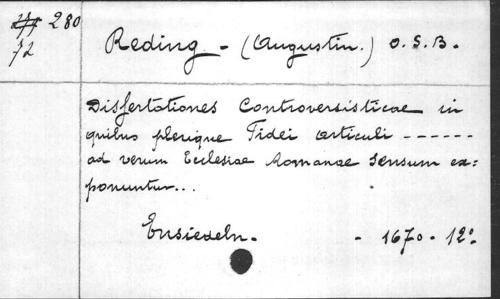 280
72
Reding - (Augustin.) O.S.B.
Dissertationes Controversisticae in
quibus plerique Fidei articuli ------
ad verum Ecclesiae Romanae Sensum ex=
ponuntur...
Ensiedeln. - 1670. 12°